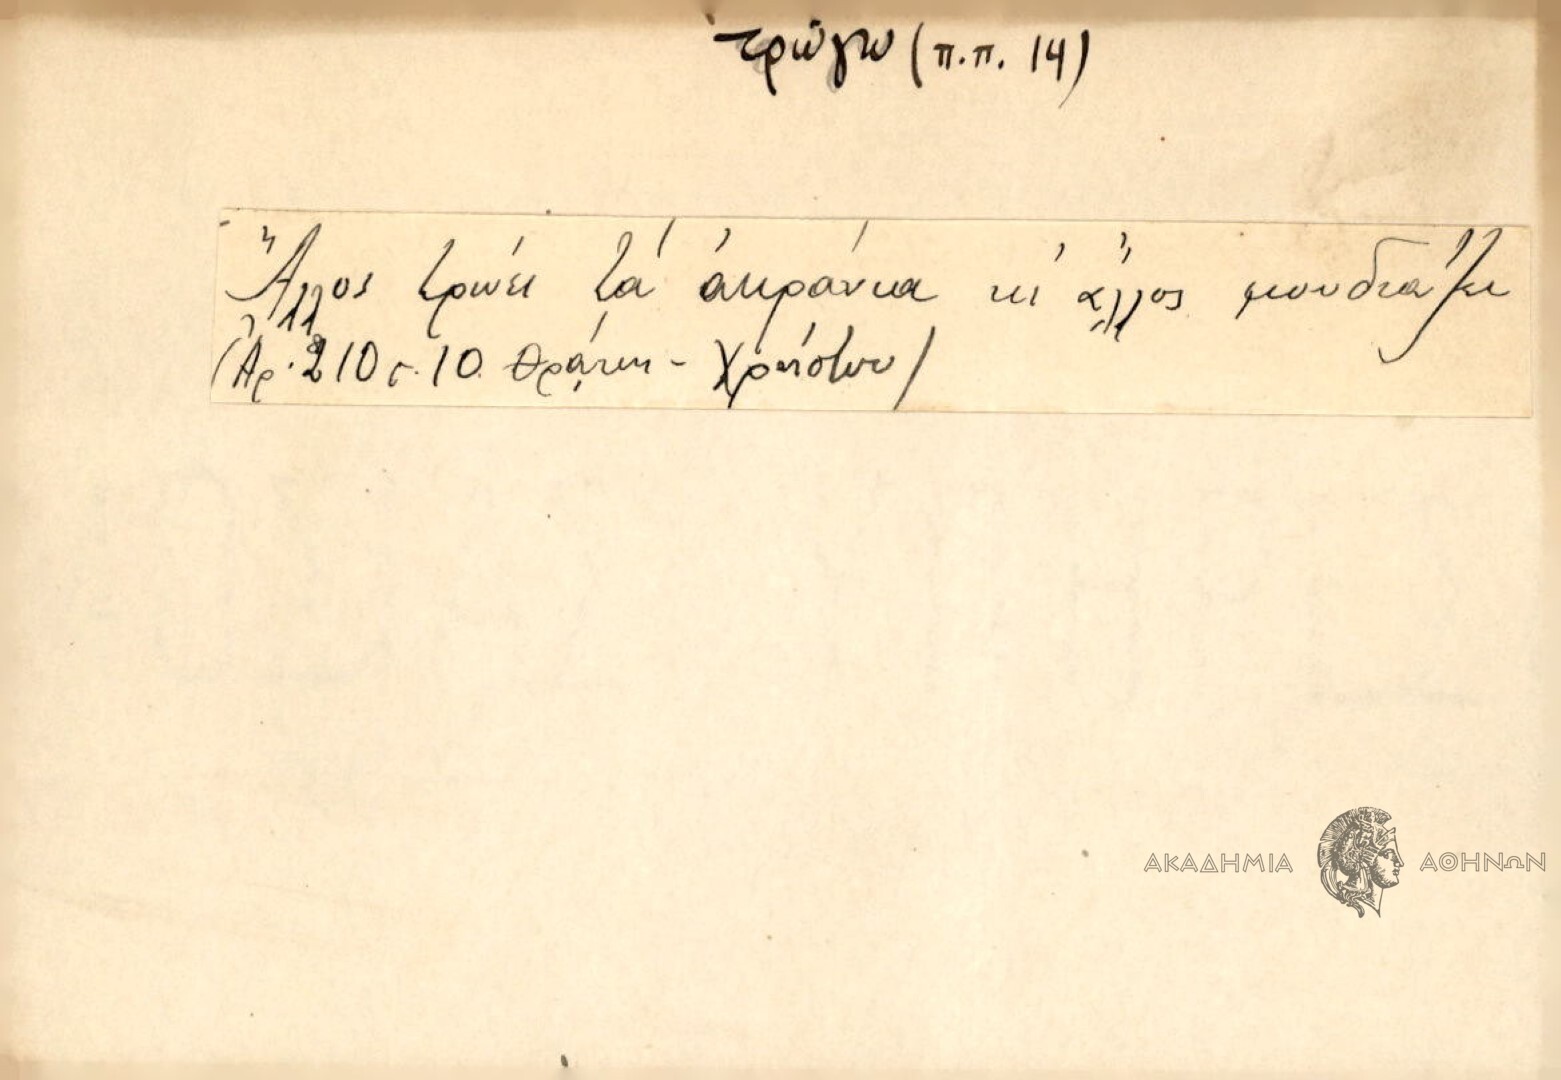 τρώγω (π.π. 14)
Ἄλλος τρώει τά ἀκράνια κι' ἄλλος μουδιάζει
(Ἀρ. 210 σ. 10. Θράκη - Χρήστου)
ΑΚΑΔΗΜΙΑ ΑΘΗΝΩΝ